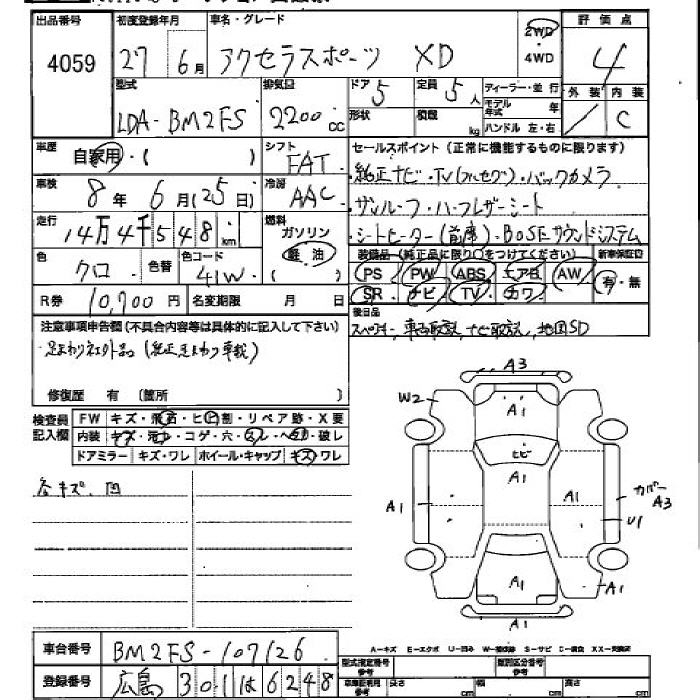 出品番号 初度登録年月 車名・グレード 2WD 評価点
4059 27 6月 アクセラスポーツ XD 4WD 4
型式 排気量 ドア 5 定員 5人 ディーラー・並行 外装 内装
LDA-BM2FS 2200cc 形状 積載 kg モデル年式 年 / C
ハンドル 左・右
車歴 自家用・( ) シフト FAT セールスポイント (正常に機能するものに限ります)
・純正ナビ・TV(フルセグ)・バックカメラ
車検 8年 6月(25日) 冷房 AAC ・サンルーフ・ハーフレザーシート
走行 14万4千548km 燃料 ガソリン 軽油 ( ・シートヒーター(前席)・BOSEサウンドシステム
色 クロ 色替 色コード 41W 装備品 (純正品に限り○をつけてください) 新車保証書
PS PW ABS エアB AW 有・無
R券 10,700円 名変期限 月 日 SR ナビ TV カワ
注意事項申告欄(不具合内容等は具体的に記入して下さい) 後日品
スペアキー, 車両取説, ナビ取説, 地図SD
・足まわり社外品(純正足まわり車載)
修復歴 有 (箇所 )
検査員記入欄 FW キズ・飛石・ヒビ割・リペア跡・X要
内装 キズ・汚レ・コゲ・穴・スレ・ヘタリ・破レ
ドアミラー キズ・ワレ ホイール・キャップ キズ・ワレ
各キズ 凹
A3
W2 A1
ヒビ
A1
A1 A1 カバー A3
U1
A1
A1
A1
A-キズ E-エクボ U-凹み W-補修跡 S-サビ C-腐食 XX-交換済
車台番号 BM2FS-107126 型式指定番号 参考 類別区分番号 参考
登録番号 広島 301 は 6248 長さ cm 幅 cm 高さ cm